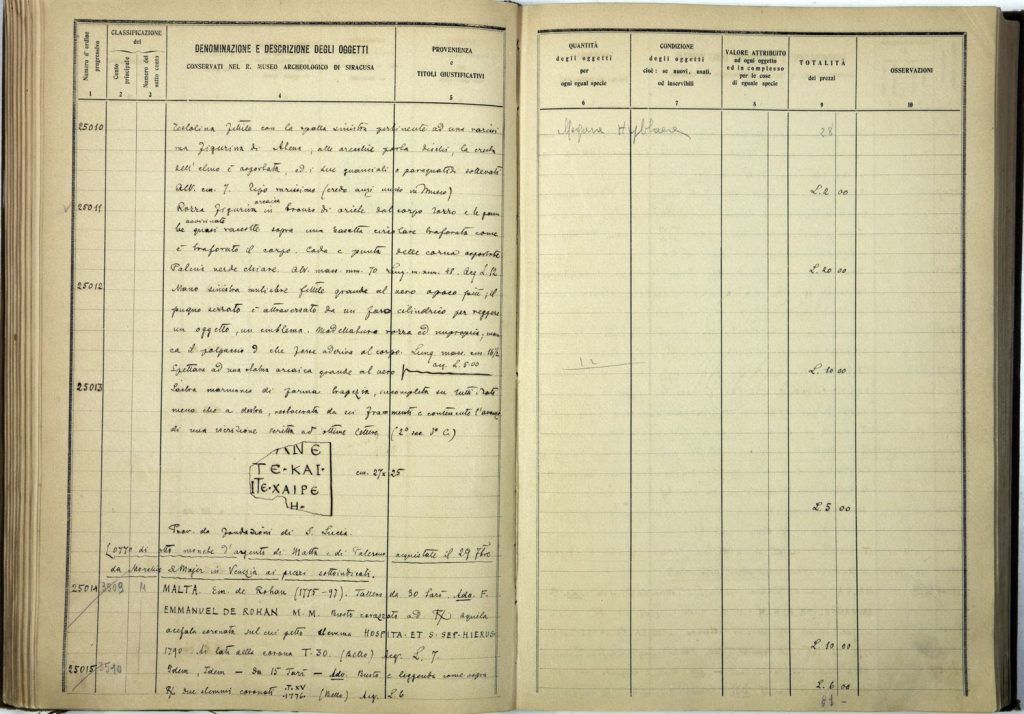 Numero d'ordine progressivo
CLASSIFICAZIONE
del
Conto principale
Numero del sotto conto
DENOMINAZIONE E DESCRIZIONE DEGLI OGGETTI
CONSERVATI NEL R. MUSEO ARCHEOLOGICO DI SIRACUSA
PROVENIENZA
e
TITOLI GIUSTIFICATIVI
1 2 3 4 5
25010 Testolina fittile con la spalla sinistra pertinente ad una rarissi
ma figurina di Atena, alle orecchie porta dischi, la cresta
dell'elmo è asportata, ed i due guanciali o paragnatidi sollevati
Alt. cm. 7. Tipo rarissimo (credo anzi nuovo in Museo)
25011 Rozza figurina arcaica in bronzo di ariete dal corpo tozzo e le gam
be quasi raccolte sopra una basetta circolare traforata come
è traforato il corpo. Coda e punta delle corna asportate
Patina verde chiara. Alt. mass. mm. 70 Lung. m. mm. 48. Acq L. 12
25012 Mano sinistra muliebre fittile grande al vero o poco più; il
pugno serrato è attraversato da un foro cilindrico per reggere
un oggetto, un emblema. Modellatura rozza ed impropria, man
ca il che forse aderiva al corpo. Lung. mass. cm. 16/2
acq. L. 5.00
Spettava ad una statua arcaica grande al vero
25013 Lastra marmorea di forma trapezia, incompleta su tutti i lati
meno che a destra, restaurata da sei frammenti e contenente l'avanzo
di una iscrizione scritta ad ottime lettere (2° sec. d. C.)
ΑΝΕ
ΤΕ·ΚΑΙ·
ΙΤΕ·ΧΑΙΡΕ
Η·
cm. 27 x 25
Prov. da fondazioni di S. Lucia.
Lotto di otto monete d'argento di Malta e di Palermo acquistate il 29
da in Venezia ai prezzi sottoindicati.
25014 3509 M MALTA. Em. de Rohan (1775-97). Tallero da 30 Tarì. Ado. F.
EMMANUEL DE ROHAN M. M. Busto corazzato ad R/ aquila
acefala coronata sul cui petto stemma HOSPITA· ET S· SEP· HIERUS·
1790 Ai lati della corona T. 30. (Bello) Acq. L. 7.
25015 3510 Idem, Idem — Da 15 Tarì — Ado. Busto e leggenda come sopra
R/ due stemmi coronati T. XV 1776 (Bello) Acq. L. 6
QUANTITÀ
degli oggetti
per
ogni egual specie
CONDIZIONE
degli oggetti
cioè: se nuovi, usati,
od inservibili
VALORE ATTRIBUITO
ad ogni oggetto
ed in complesso
per le cose
di eguale specie
TOTALITÀ
dei prezzi
OSSERVAZIONI
6 7 8 9 10
Megara Hyblaea 28
L. 2 00
L. 20 00
12
L. 10 00
L. 5 00
L. 10 00
L. 6 00
81 –